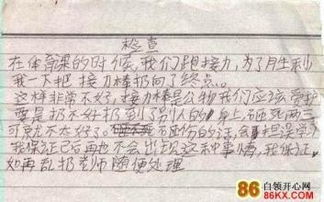 检查
在体育课的时候,我们跑接力,为了月生利
我一下把接力棒扔向了终点。
这样非常不好,接力棒是公物我们应该爱护
要是扔不好扔到了别人的身上,砸死两三
可就不太好了。
我保证已后再也不会出现这种事情,我保证
如再乱扔老师随便处理
86 白领开心网
86KX.COM